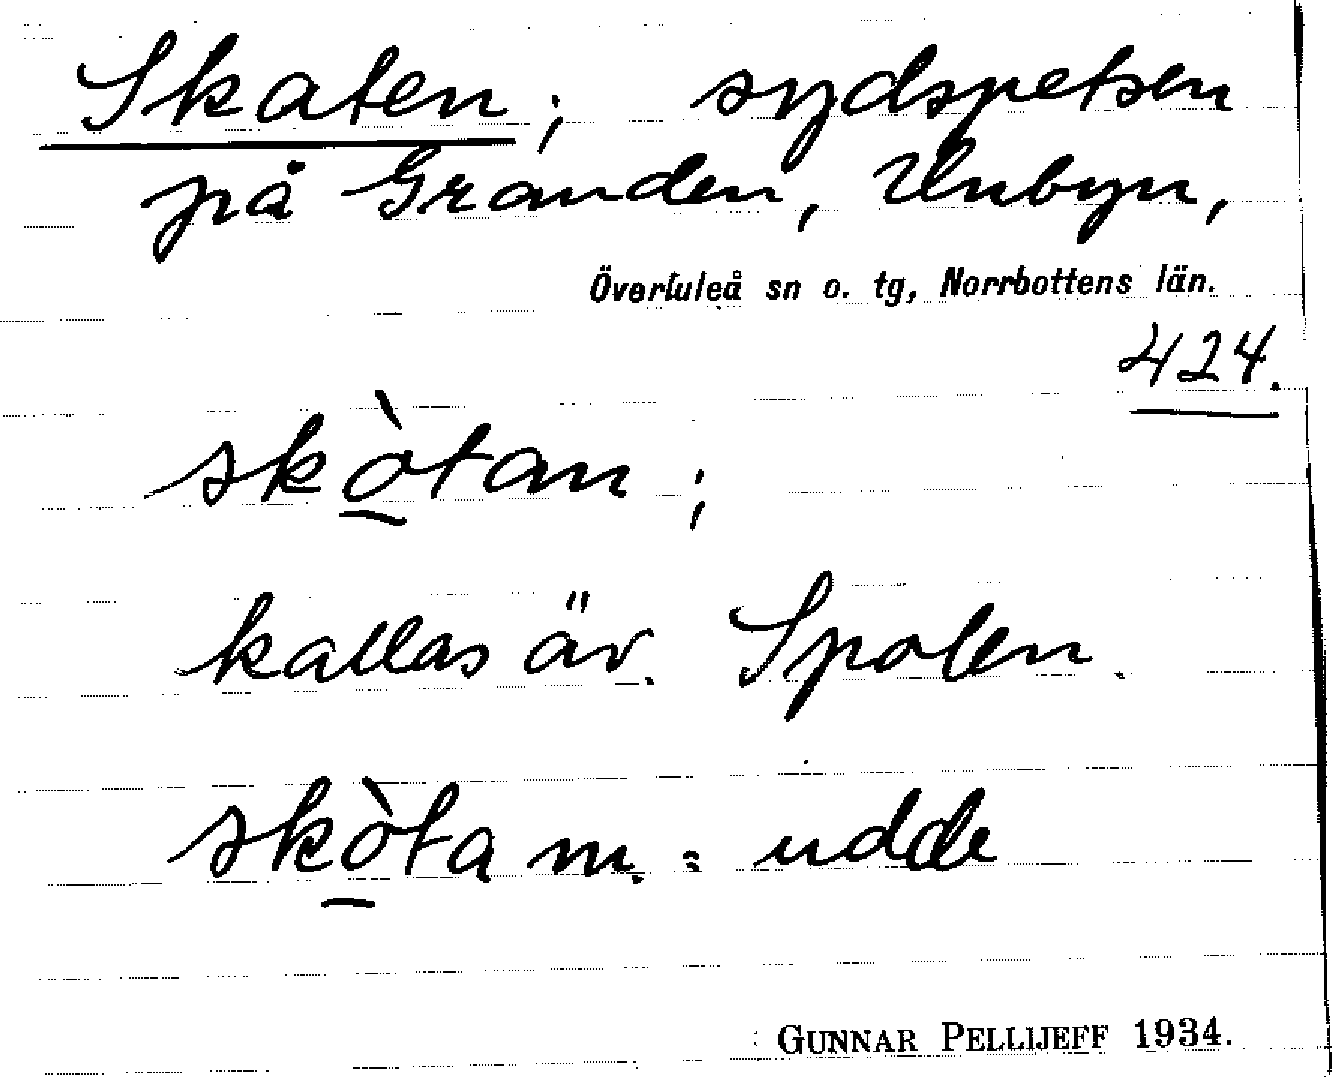 Skaten; sydspetsen
på Granden, Unbyn,
Överluleå sn o. tg, Norrbottens län.
424.
skò̠tan;
kallas äv. Spolen.
skò̠ta m. = udde
GUNNAR PELLIJEFF 1934.